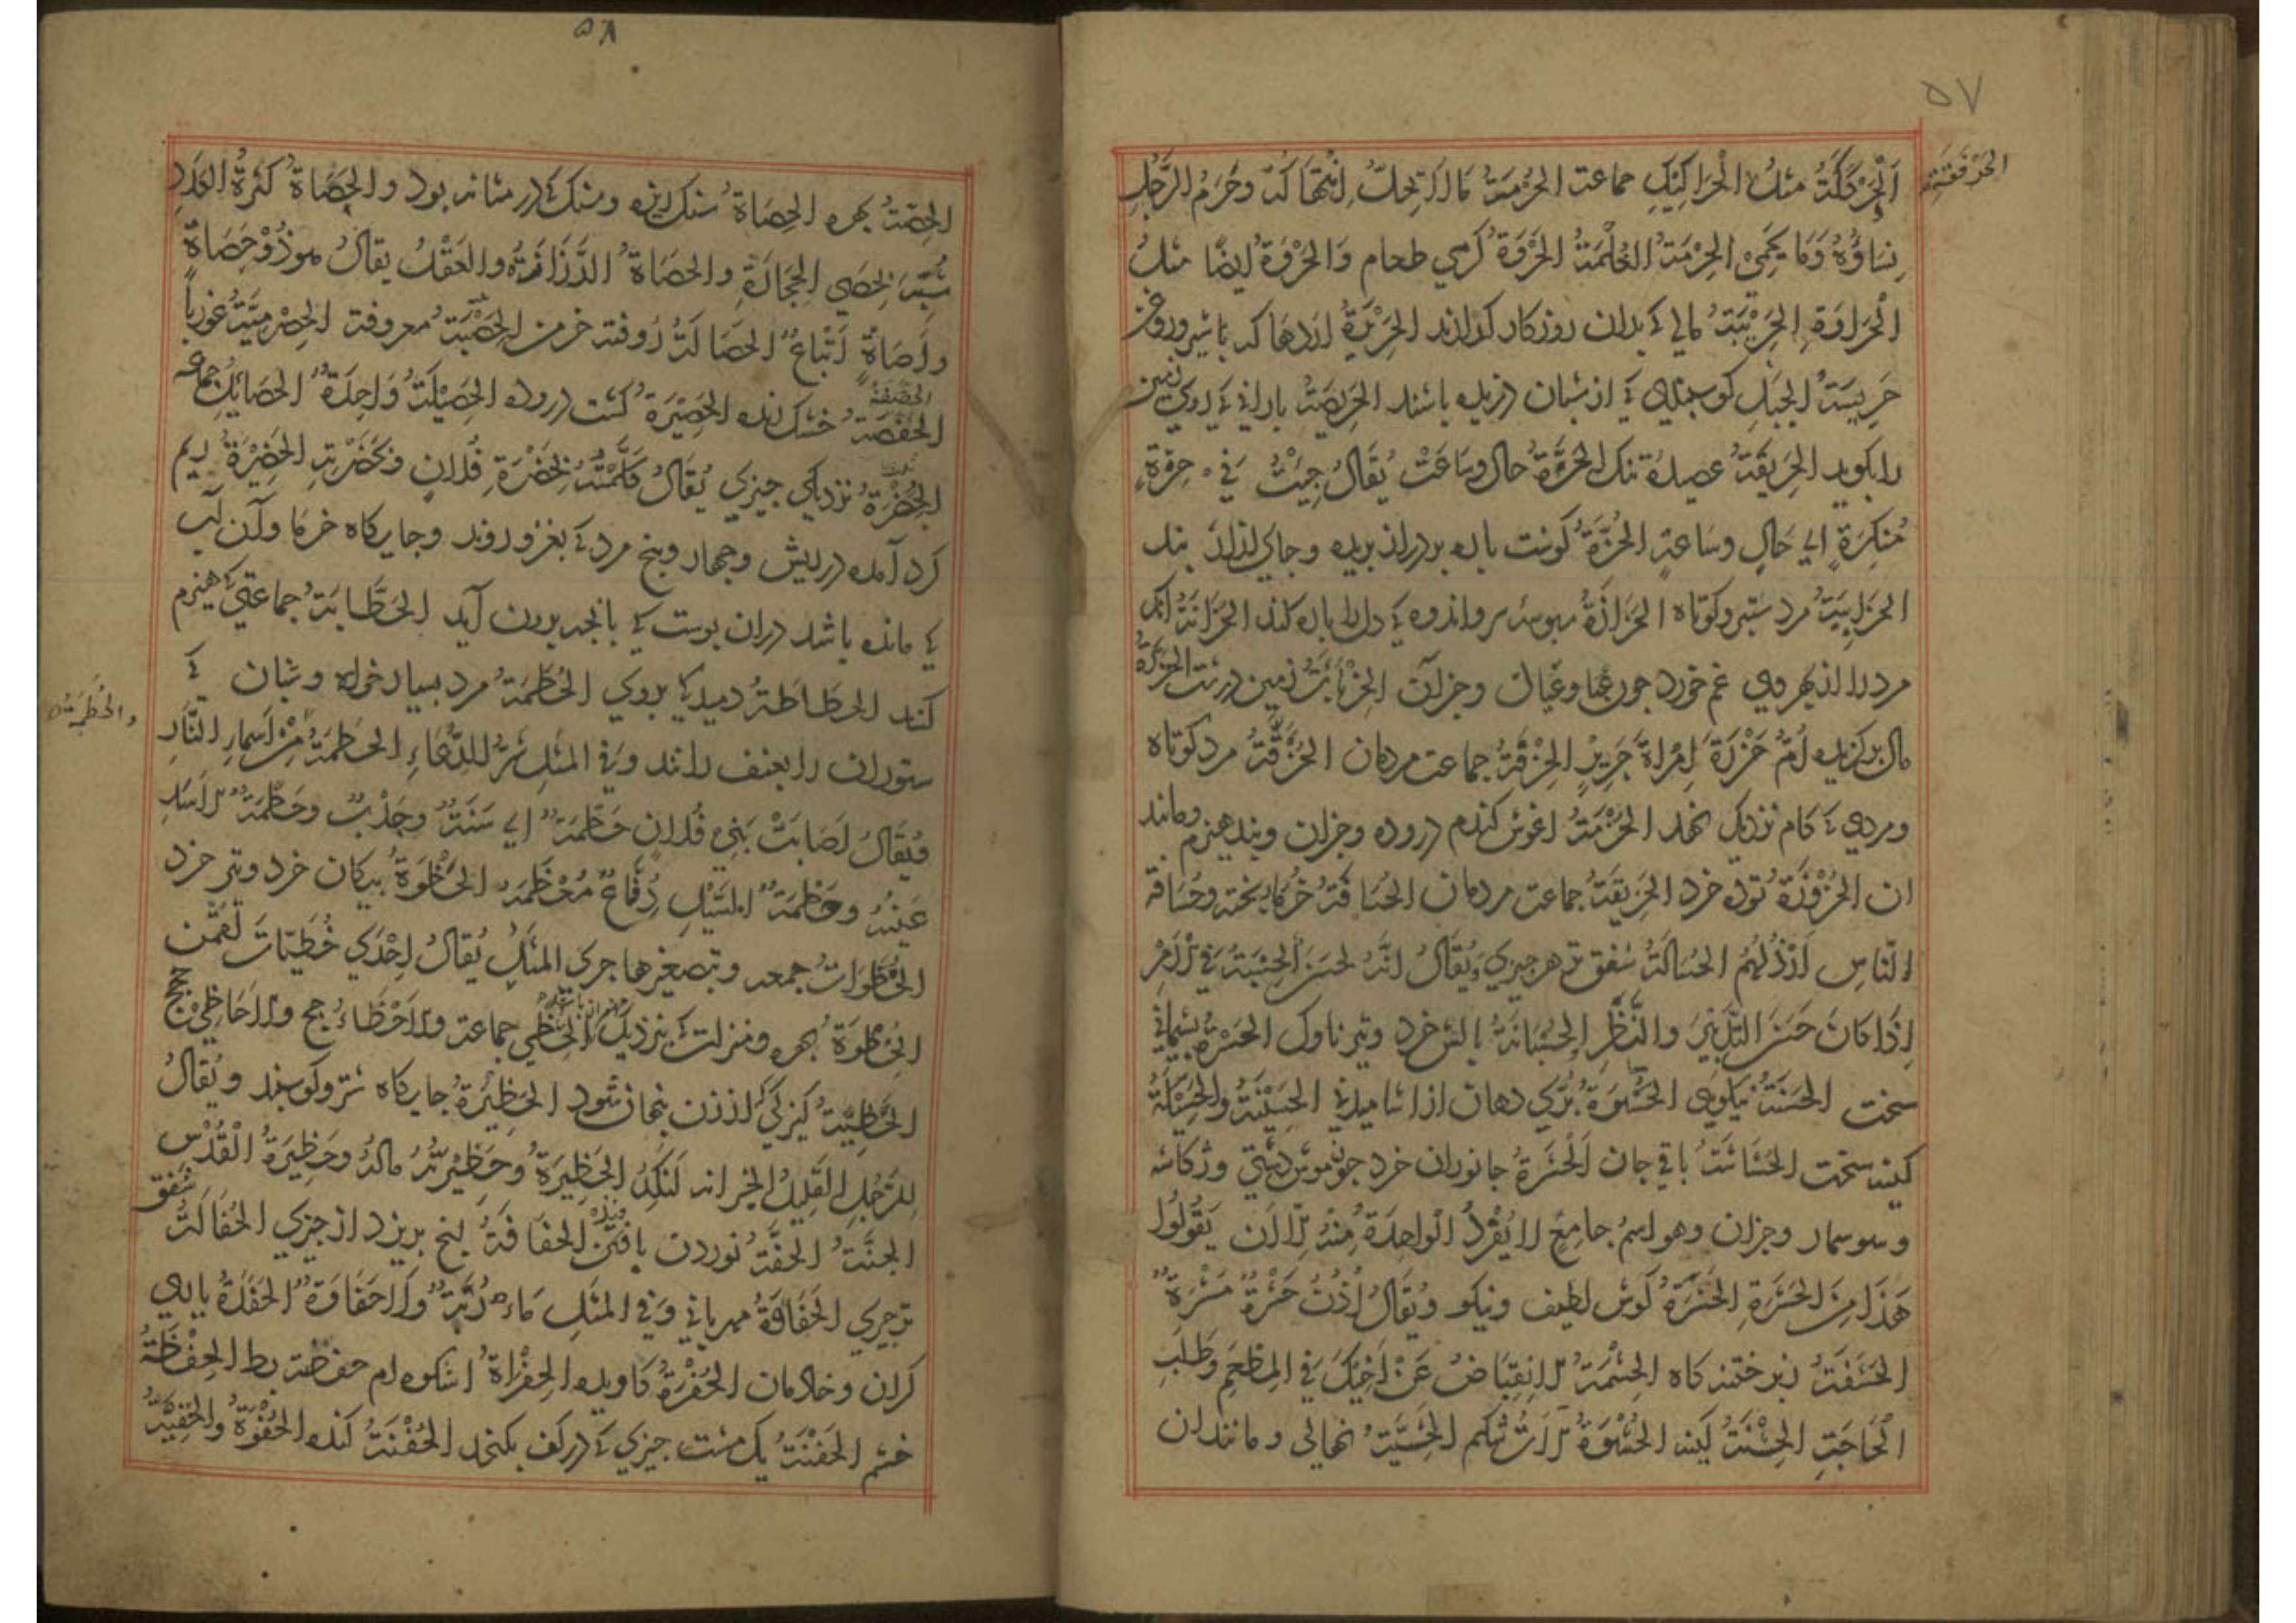 ۵۷
الحَرْقَفَةُ
اَلْحَرْكَكَةُ مثلُ الْحَرَاكِيكِ جماعت الحُرْمَةُ مَا لَا يَحِلُّ اِنْتِهَاكُهُ وحُرَمُ الرَّجُلِ
نِسَاؤُهُ وَمَا يَحْمِيْ الحِرْمَةُ الغُلْمَةُ الحَرْوَةُ كرمي طعام وَالحَرْوَةُ ايضًا مثلُ
الْحَرَاوَةِ الحَرِيْبَةُ مالي كه بدان روزكار كذرانند الحَرِيْرَةُ اردهاكه با شير وروغن
حَرِيسَةُ الجَبَلِ كوسبندي كه از شبان دزديده باشند الحَرِيصَةُ باراني كه روي زمين
را بكويد الحَرِيقَةُ عصيدهٔ تنك الحَزَّةُ حال وسَاعَتْ يُقَالُ جِيْتُ فِي حَزَّةٍ
مُنْكَرَةٍ اي حَالٍ وسَاعَةٍ الحُزَّةُ كوشت پاره بر دراز بريده وجاي ازار بند
الحَزَابِيَةُ مرد ستبر وكوتاه الحَزَازَةُ سبوسهٔ سر واندوه كه دل را پاره كند الحُزَانَةُ انكه
مرد را از بهر وي غم خورد چون عيال وجزآن الحِزْبَاءَةُ زمين درشت الحَزْرَةُ
مال بركزيده اُمُّ حَزْرَةَ اِمْرَاةُ جَرِيْرٍ الحِزْقَةُ جماعت مردمان الحُزُقَّةُ مرد كوتاه
ومردي كه كام نزديك نهد الحُزْمَةُ اغوش كندم دروده وجزان وبند هيزم ومانند
ان الحَزْوَرَةُ تودهٔ خرد الحَزِيقَةُ جماعت مردمان الحُسَافَةُ خرما ريخته وحُسَافة
النّاسِ اَرْذَلُهُمْ الحُسَالَةُ سُفق هر چيزي وَيُقَالُ اِنَّهُ لحَسَنُ الحِسْبَةِ فِي الْاَمْرِ
اِذَا كَانَ حَسَنَ التَّدْبِيْرِ والنَّظَرِ الحُسْبَانَةُ بالش خرد وتير ناوك الحَسْرَةُ پشيماني
سخت الحَسَنَةُ نيكويي الحُسْوَةُ پُرّي دهان از اشاميدني الحَسِيْفَةُ والحَسِيْكَةُ
كينهٔ سخت الحُشَاشَةُ باقي جان اَلْحَشَرَةُ جانوران خرد چون موش دشتي وژكاسه
وسوسمار وجزان وهو اسمٌ جامعٌ لا يُفْرَدُ الْوَاحِدَةُ مِنْهُ اِلَّا اَنْ يَقُوْلُوا
هَذَا مِنَ الحَشَرَةِ الحَشْرَةُ كوش لطيف ونيكو ويُقَالُ اُذُنٌ حَشْرَةٌ مَشْرَةٌ
الحَشَفَةُ ختنه كاه الحِشْمَةُ الاِنْقِبَاضُ عَنْ اَخِيْكَ فِي المَطْعَمِ وَطَلَبِ
الْحَاجَةِ الحِشْنَةُ كينه الحُشْوَةُ الات شكم الحَشِيَّةُ نهالي ومانند ان
۵۸
الحِصَّةُ بهره الحَصَاةُ سنك ريزه وسنك كه در مثانه بود والحَصَاةُ كَثْرَةُ العَدَدِ
شُبِّهَ بِحَصَي الحِجَارَةِ والحَصَاةُ الرَّزَانَةُ والعَقْلُ يقالُ هو ذُوْ حَصَاةٍ
واَصَاةٍ اتْبَاعٌ الحُصَالَةُ رُوفته خرمن الحَصْبَةُ معروفة الحِصْرِمِيَّةُ غورباً
الحَصَفَةُ
خشك انده الحَصِيْرَةُ كشت دروده الحَصِيْلَةُ وَاحِدَةُ الحَصَائِلِ جماعة
الحَضْرَةُ نزديكي چيزي يُقَالُ كَلَّمْتُهُ بِحَضْرَةِ فُلَانٍ وبِحَضْرَتِهِ الحَضِيْرَةُ ريم
كرد آمده در ريش وچهار وپنج مرد كه بغزو روند وجايكاه خرما وآن آب
كه مانده باشد دران پوست كه با بچه بيرون آيد الحَطَّابَةُ جماعتي كه هيزم
كنند الحَطَاطَةُ دميدكي بروي الحُطَمَةُ مرد بسيار خواره وشبان كه
والحُطَمَةُ
ستوران را بعنف رانند وفي المثل شَرُّ الرِّعَاءِ الحُطَمَةُ مِنْ اَسْمَاءِ النَّارِ
فيُقَالُ اَصَابَتْ بَنِي فُلَانٍ حَطْمَةٌ اي سَنَةٌ وجَدْبٌ وحَطْمَةُ الاَسَدِ
عَيْثُهُ وحَطْمَةُ السَّيْلِ دُفَّاعُ مُعْظَمِهِ الحَظْوَةُ پيكان خرد وتير خرد
الحَظَوَاتُ جمعه وبتصغيرها جري المثلُ يُقَالُ اِحْدَي حُظَيَّاتِ لُقْمٰن
الحُظْوَةُ بهره ومنزلت كه بنزديك الحُظي جماعت والاَحْظَاءُ جج والاَحَاظِيْ ججج
الحَظِيَّةُ كنيزكي كه از زن پنهان شود الحَظِيْرَةُ جايكاه شتر وكوسبند ويُقَالُ
لِلرَّجُلِ القَلِيلِ الخيرِ انه لَنَكِدُ الحَظِيرَةِ وحَظِيْرَتُهُ مالُهُ وحَظِيرَةُ الْقُدْسِ
الجنَّةُ الحَفَّةُ نوردن بافتن الحُفَافَةُ انچ بريزد از چيزي الحُفَالَةُ سُفق
هر چيزي الحَفَاوَةُ مهرباني وفي المثل مَاْرُبَةٌ لَا حَفَاوَةٌ الحَفَدَةُ ياري
كران وخادمان الحُفْرَةُ كاويده الحِفْرَاةُ ام حفصة بط الحِفْظَةُ
خشم الحَفْنَةُ يك مشت چيزي كه در كف بكنجد الحُفْنَةُ كنده الحُفْوَةُ والحِفْيَةُ